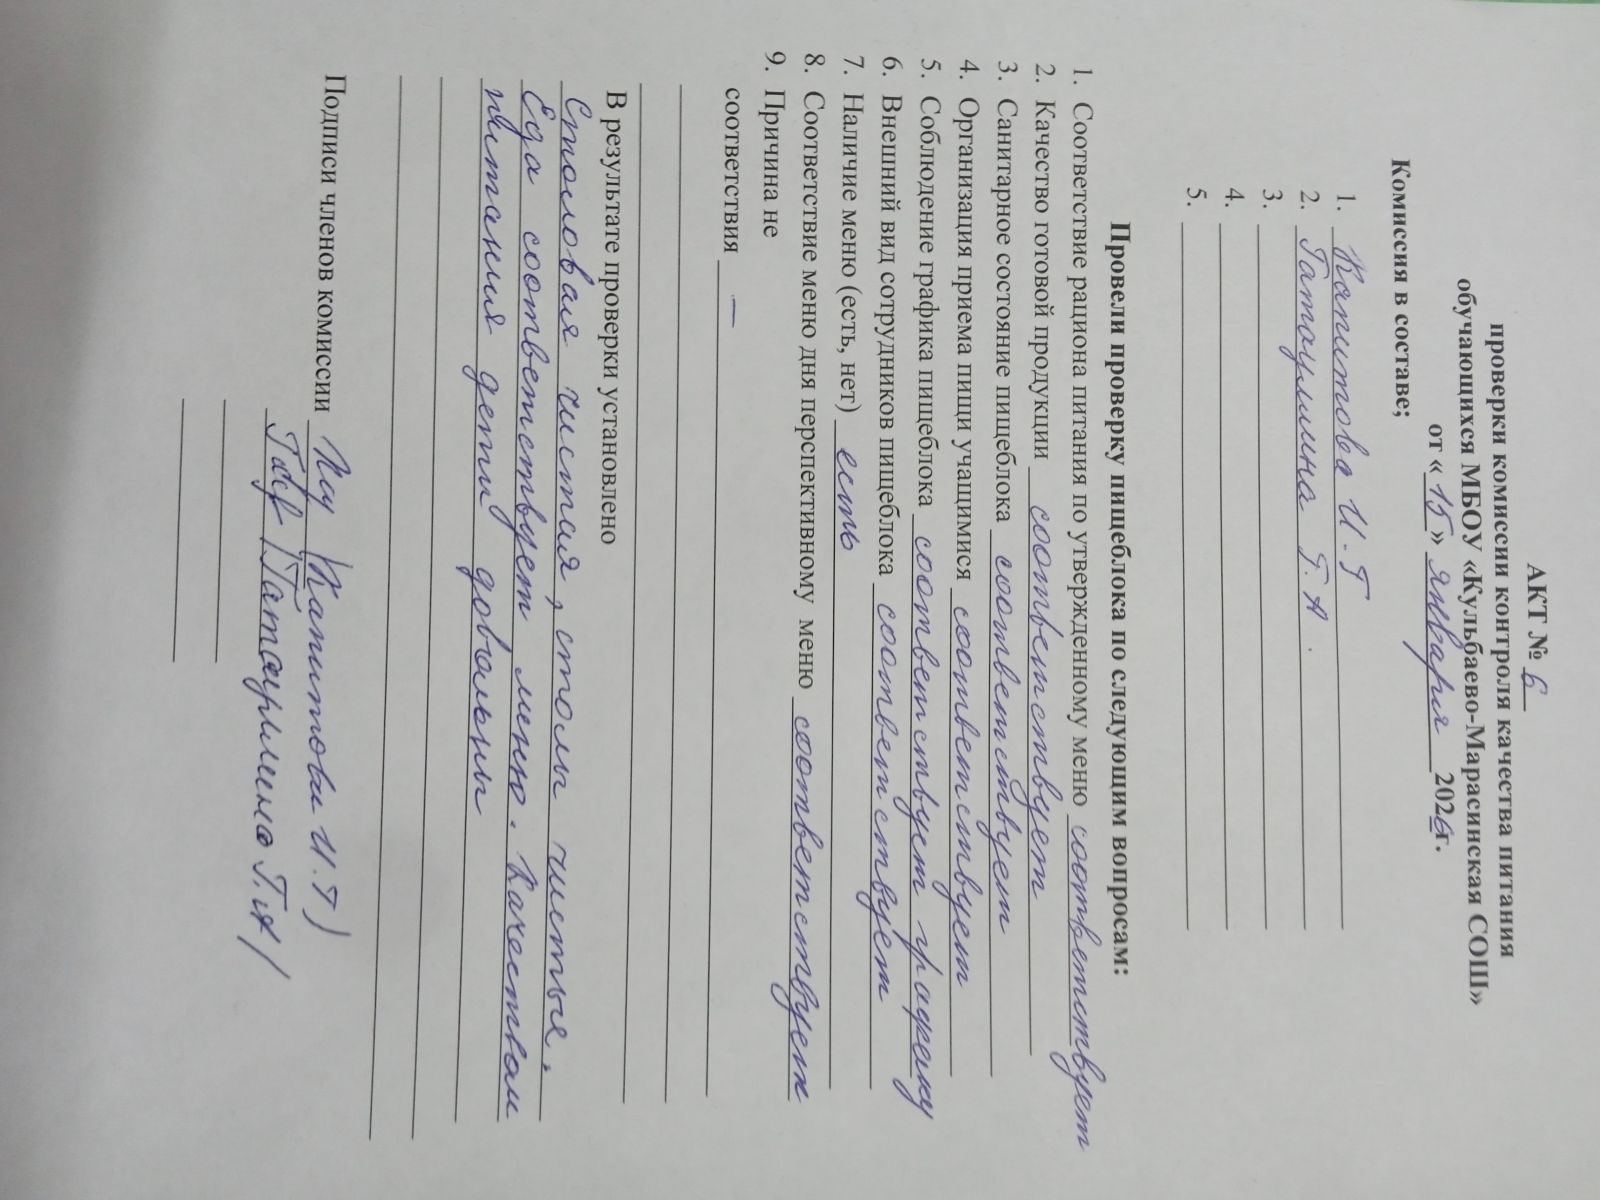 АКТ № 6
проверки комиссии контроля качества питания
обучающихся МБОУ «Кульбаево-Марасинская СОШ»
от « 15 » января 2026г.
Комиссия в составе;
1. Капитова И.Г
2. Гатауллина Г.А.
3.
4.
5.
Провели проверку пищеблока по следующим вопросам:
1. Соответствие рациона питания по утвержденному меню соответствует
2. Качество готовой продукции соответствует
3. Санитарное состояние пищеблока соответствует
4. Организация приема пищи учащимися соответствует
5. Соблюдение графика пищеблока соответствует графику
6. Внешний вид сотрудников пищеблока соответствует
7. Наличие меню (есть, нет) есть
8. Соответствие меню дня перспективному меню соответствует
9. Причина не
соответствия —
В результате проверки установлено
Столовая чистая, столы чистые.
Еда соответствует меню. Качеством
питания дети довольны
Подписи членов комиссии (Капитова И.Г)
/Гатауллина Г.А/